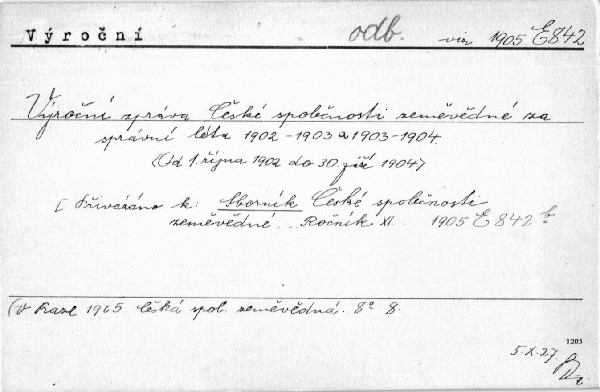 Výroční odb. viz 1905 E 842
Výroční zpráva České společnosti zeměvědné za
správní léta 1902-1903 a 1903-1904.
(Od 1. října 1902 do 30. září 1904)
[Přivázáno k: Sborník České společnosti
zeměvědné. Ročník XI. 1905 E 842 b
(V Praze 1905. Česká spol. zeměvědná. 8° 8.
1205
5.X.27.